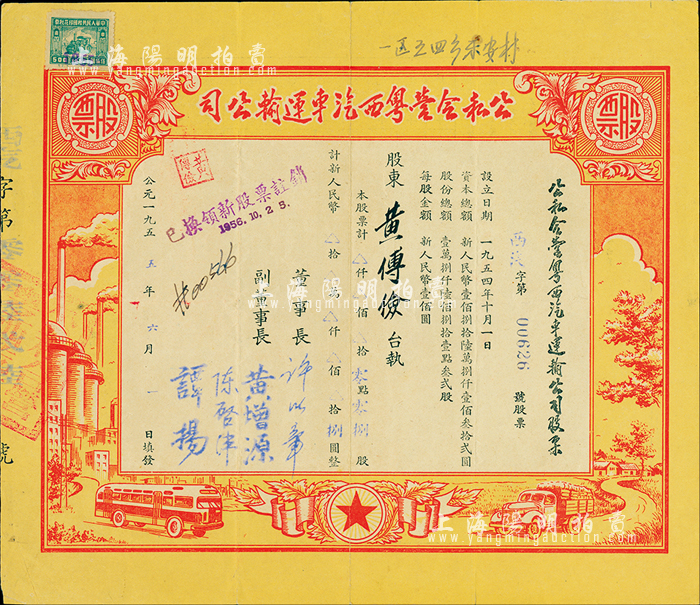 一区五四乡宋安村
上海陽明拍賣
www.yangmingauction.com
中華人民共和國印花稅票
股票
公私合营粤西汽車運輸公司
股票
公私合營粤西汽車運輸公司股票
字第 000626 號股票
設立日期 一九五四年十月一日
資本總額 新人民幣壹佰捌拾陸萬捌仟壹佰叁拾弍圓
股份總額 壹萬捌仟陸佰捌拾壹點叁弍股
每股金額 新人民幣壹佰圓
股東 黄傅俊 台執
本股票計 仟 佰 拾 零點零捌 股
計新人民幣 拾 萬 仟 佰 拾 捌 圓整
董事長 許以章
副董事長 黄增源
陈啓津
譚揚
公元一九五五年六月一日填發
已換領新股票註銷
1956.10.25.
字第
號
上海陽明拍賣
www.yangmingauction.com